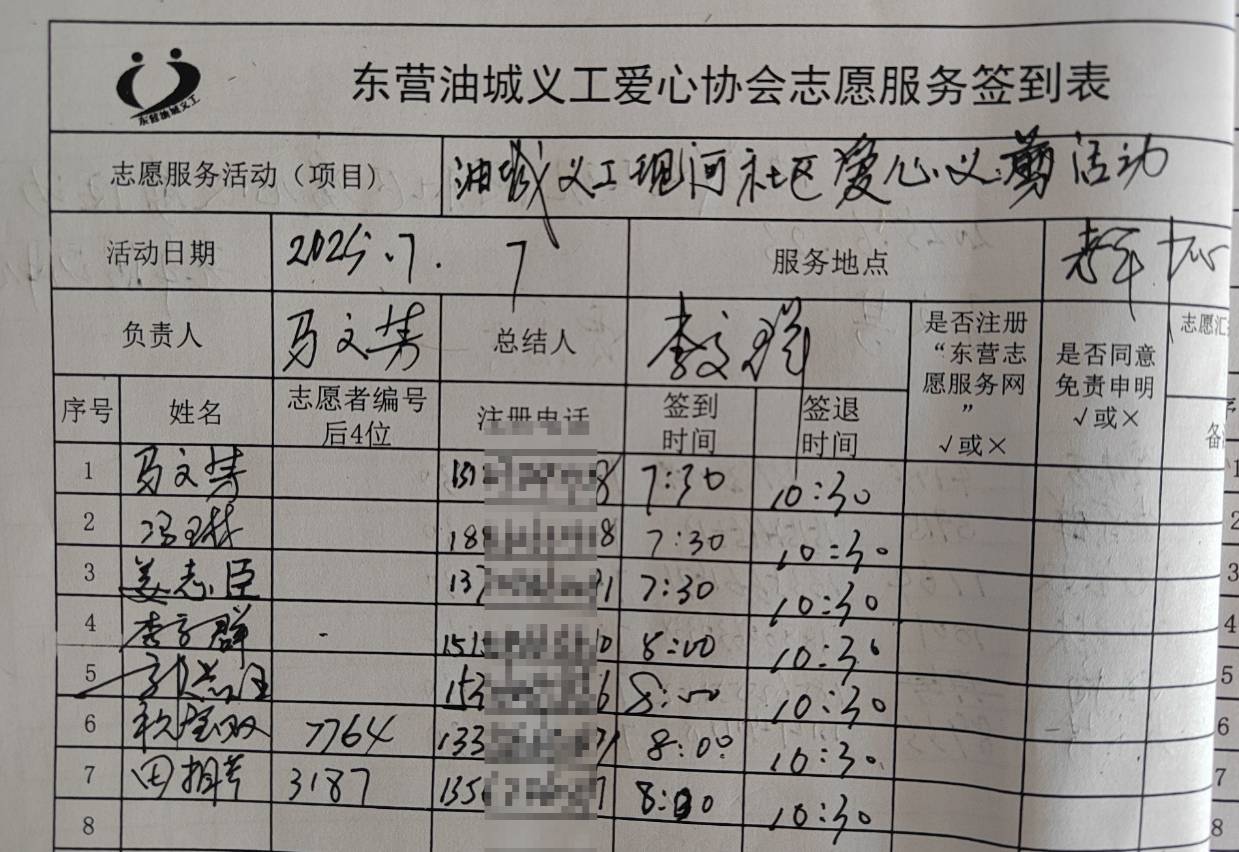 东营油城义工
东营油城义工爱心协会志愿服务签到表
志愿服务活动（项目） 油城义工现河社区爱心义剪活动
活动日期 2025.7.7 服务地点 老年
负责人 马文 总结人 李文 是否注册“东营志愿服务网” √或× 是否同意免责申明 √或× 志愿汇
序号 姓名 志愿者编号后4位 注册电话 签到时间 签退时间 备
1 马文 7:30 10:30 1
2 冯 188 8 7:30 10:30 2
3 姜志臣 137 1 7:30 10:30 3
4 李 群 151 0 8:00 10:30 4
5 153 6 8:00 10:30 5
6 7764 133 8:00 10:30 6
7 田 3187 135 7 8:00 10:30 7
8 8